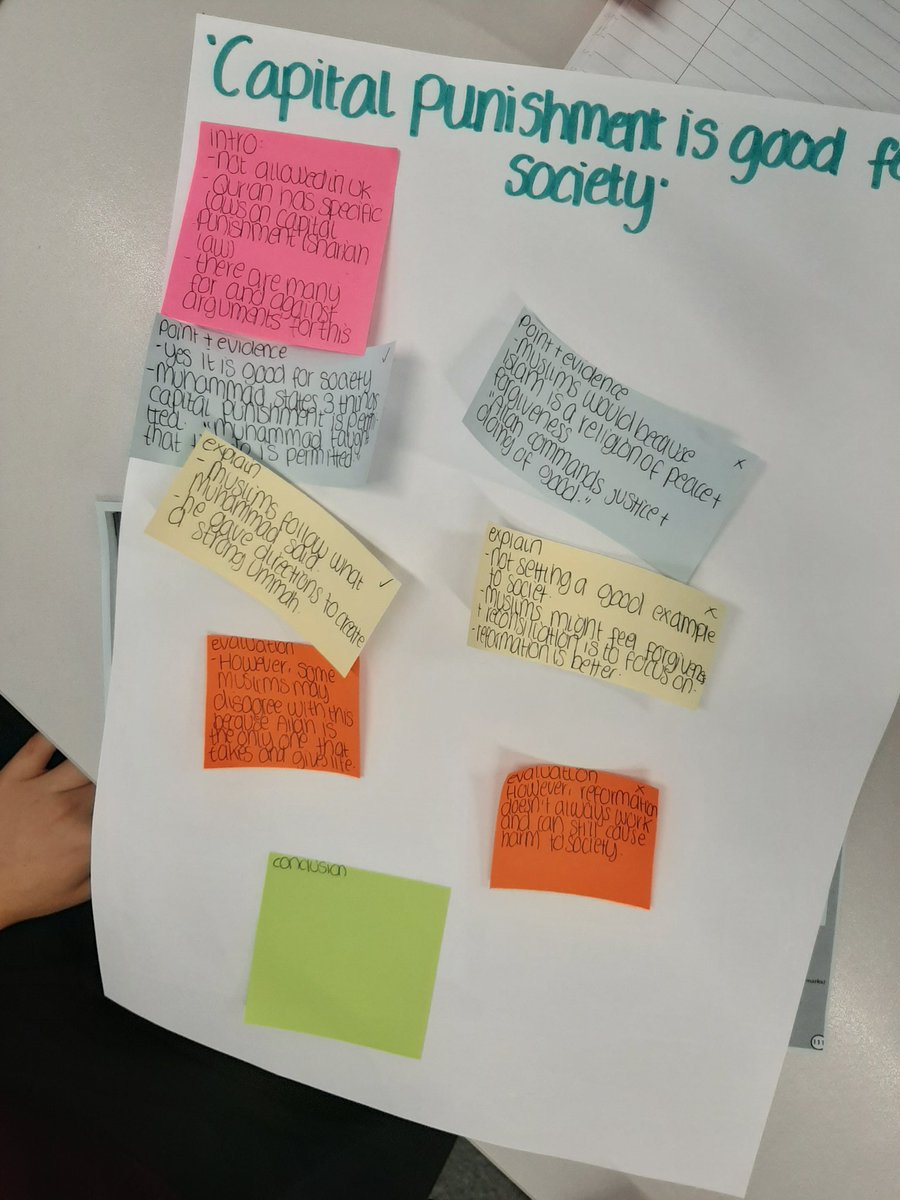 'Capital punishment is good fo
society.
intro:
- not allowed in UK
- Qur'an has specific
laws on capital
punishment (shariah
law)
- there are many
for and against
arguments for this
point + evidence ✓
- yes it is good for society
- muhammad states 3 things
capital punishment is permi-
tted. "muhammad taught
that to is permitted"
explain
- muslims follow what
muhammad said. ✓
- he gave directions to create
a strong ummah.
evaluation
- However, some
muslims may
disagree with this
because Allah is
the only one that
takes and gives life.
point + evidence
- muslims would because x
islam is a religion of peace +
forgiveness
"Allah commands justice +
doing of good."
explain
- not setting a good example x
to societ.
- muslims might feel forgivene
+ reconsiliation is to focus on.
- reformation is better.
evaluation x
However, reformation
doesn't always work
and can still cause
harm to society.
conclusion
111